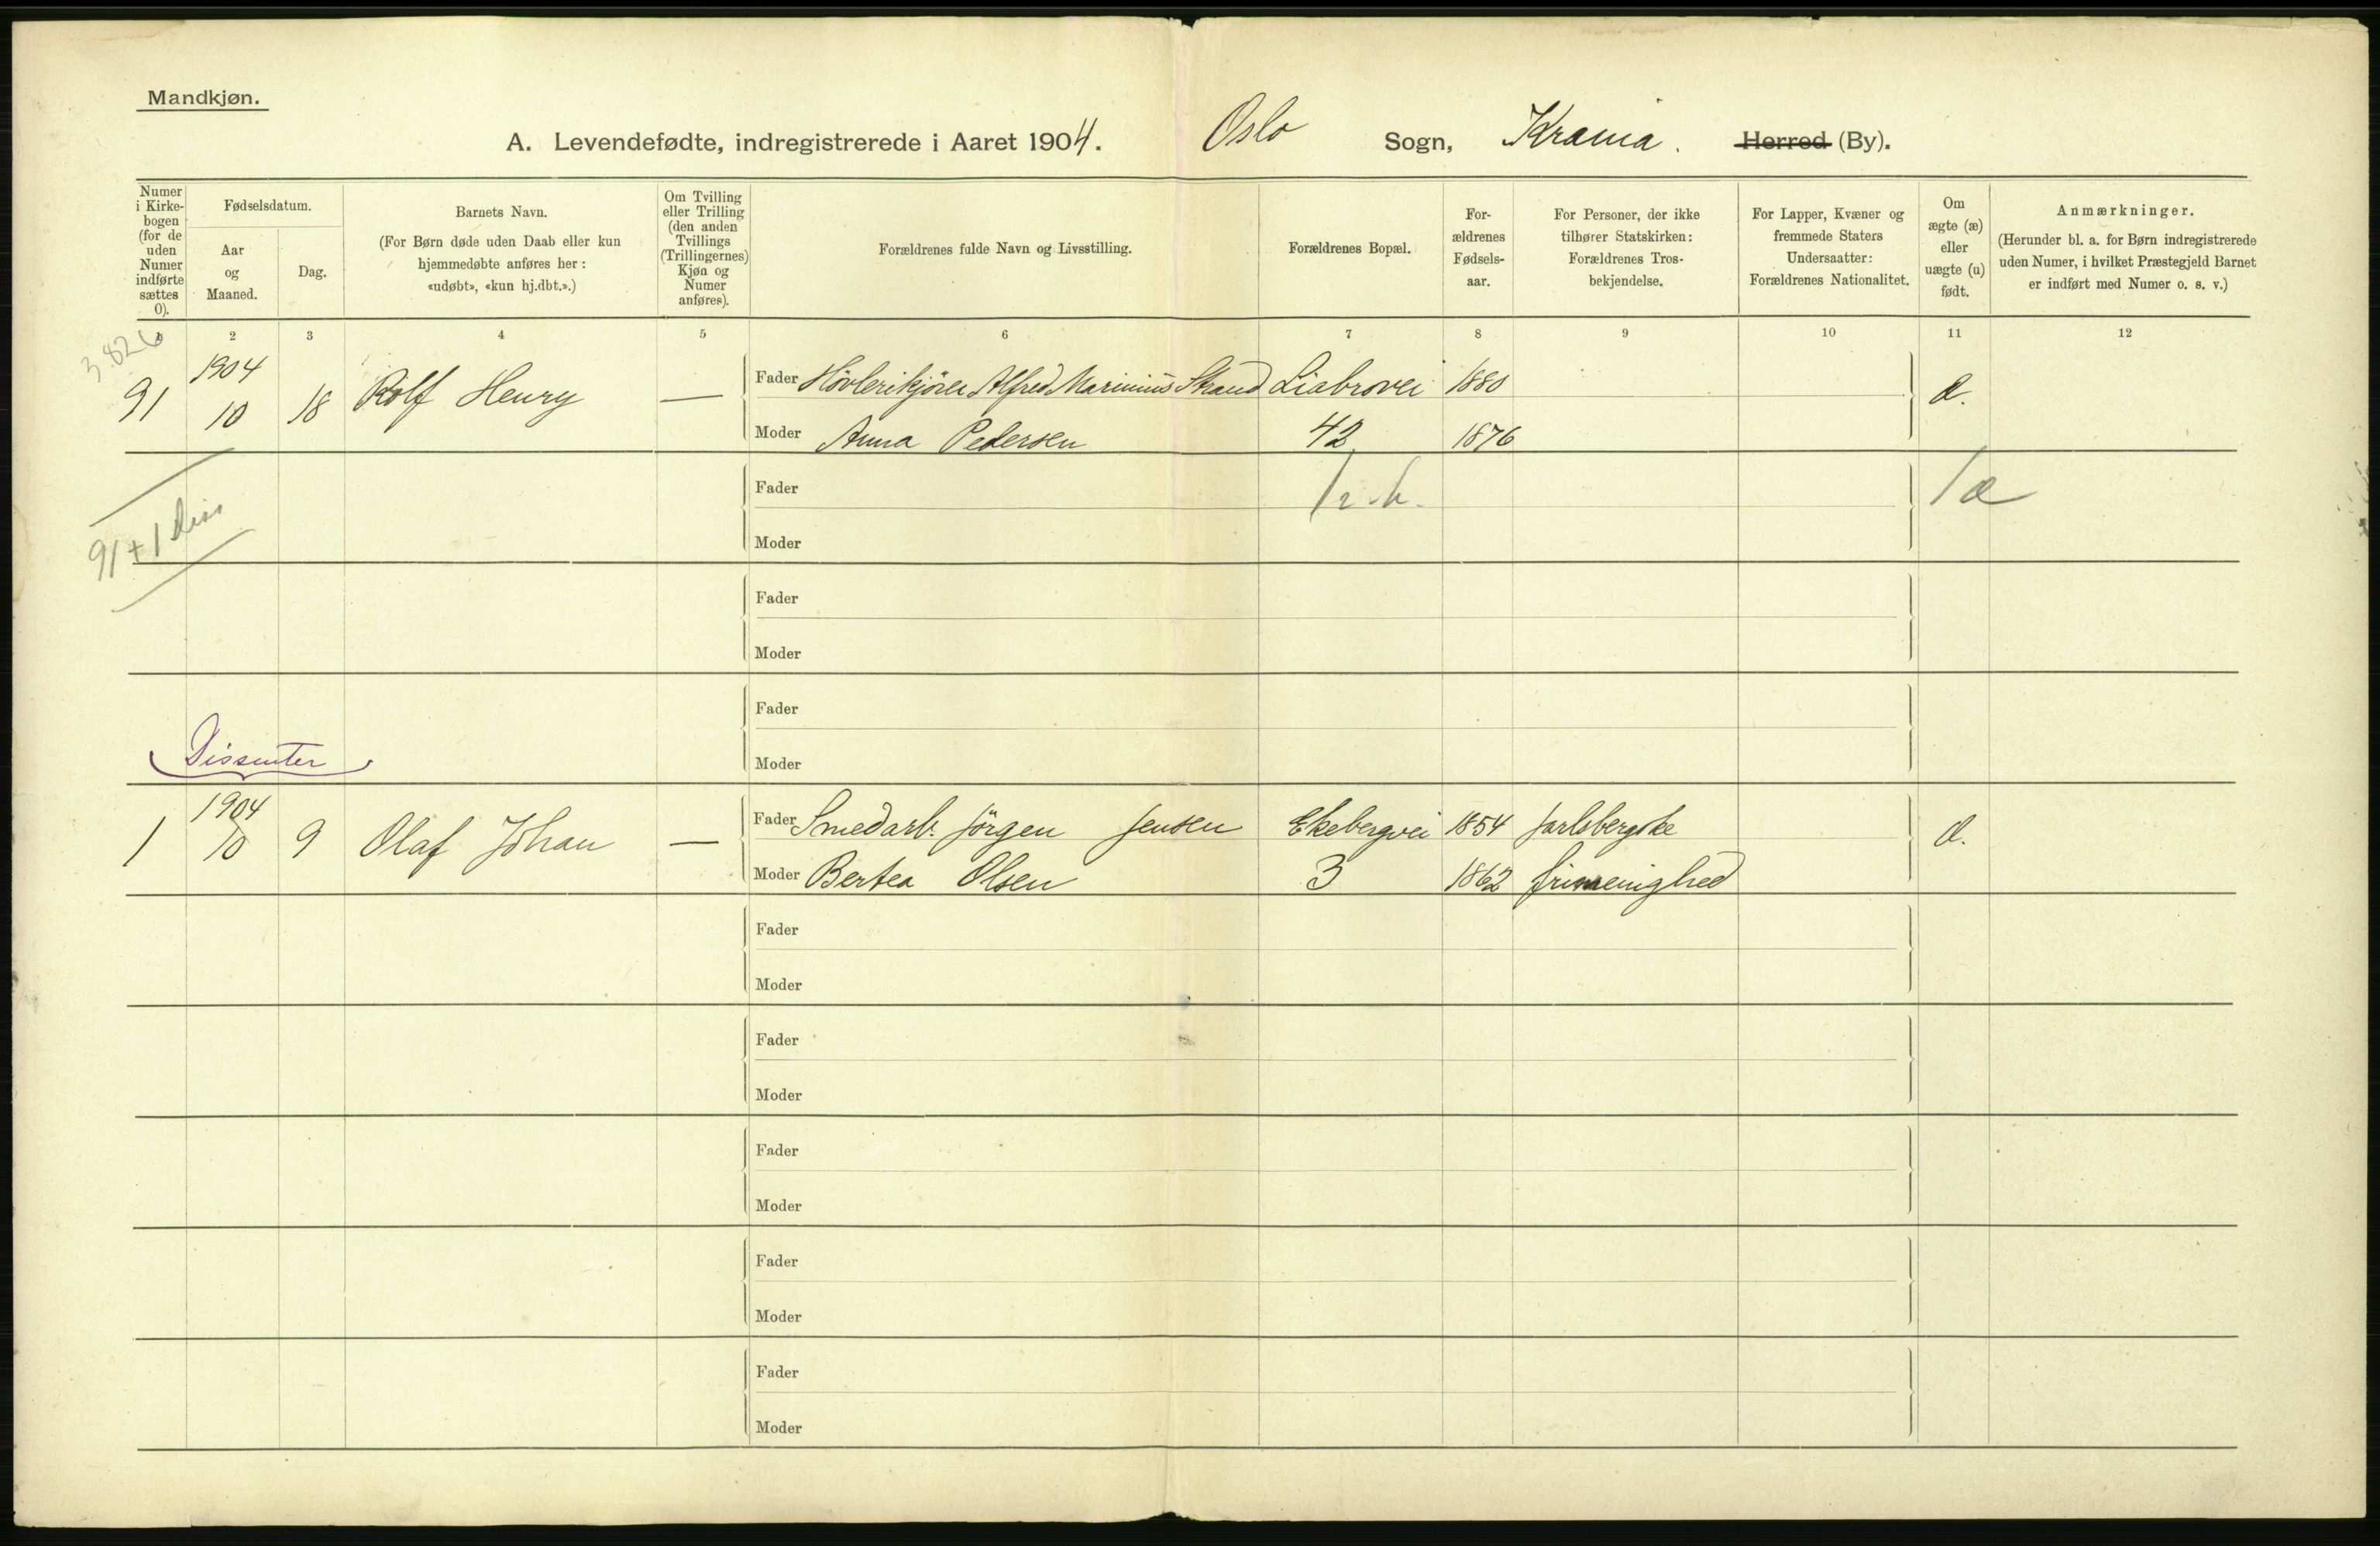 Mandkjøn.
A. Levendefødte, indregistrerede i Aaret 1904. Oslo Sogn, Krania. Herred (By).
Numer i Kirke-bogen (for de uden Numer indførte sættes 0).
Fødselsdatum.
Aar og Maaned.
Dag.
Barnets Navn.
(For Børn døde uden Daab eller kun
hjemmedøbte anføres her:
«udøbt», «kun hj.dbt.».)
Om Tvilling
eller Trilling
(den anden
Tvillings
(Trillingernes)
Kjøn og
Numer
anføres).
Forældrenes fulde Navn og Livsstilling.
Forældrenes Bopæl.
For-
ældrenes
Fødsels-
aar.
For Personer, der ikke
tilhører Statskirken:
Forældrenes Tros-
bekjendelse.
For Lapper, Kvæner og
fremmede Staters
Undersaatter:
Forældrenes Nationalitet.
Om
ægte (æ)
eller
uægte (u)
født.
Anmærkninger.
(Herunder bl. a. for Børn indregistrerede
uden Numer, i hvilket Præstegjeld Barnet
er indført med Numer o. s. v.)
1 2 3 4 5 6 7 8 9 10 11 12
3.826
91 1904 10 18 Rolf Henry — Fader Høvlerikjører Alfred Marinius Strand Liabrovei 1880 æ.
Moder Anna Pedersen 42 1876
Fader 1 æ
Moder
91 + 1 diss
Fader
Moder
Fader
Moder
Dissenter
1 1904 10 9 Olaf Johan — Fader Smedarb. Jörgen Jensen Ekebergvei 1854 Jarlsbergske æ.
Moder Bertea Olsen 3 1862 frimenighed
Fader
Moder
Fader
Moder
Fader
Moder
Fader
Moder
Fader
Moder